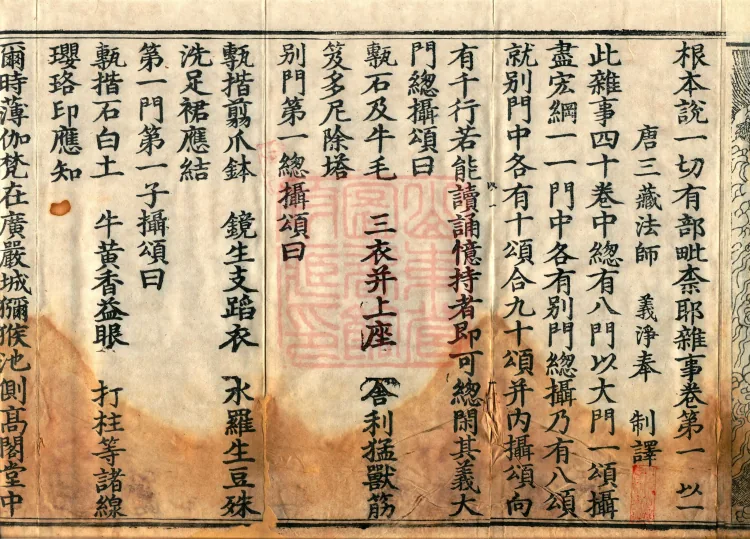 根本說一切有部毗柰耶雜事卷第一 以一
唐三藏法師 義淨奉 制譯
此雜事四十卷中總有八門以大門一頌攝
盡宏綱一一門中各有別門總攝乃有八頌
就別門中各有十頌合九十頌并內攝頌向
有千行若能讀誦憶持者即可總閑其義大
門總攝頌曰
甎石及牛毛 三衣并上座 舍利猛獸筋
笈多尼除塔
別門第一總攝頌曰
甎揩翦爪鉢 鏡生支蹈衣 水羅生豆珠
洗足裙應結
第一門第一子攝頌曰
甎揩石白土 牛黃香益眼 打柱等諸線
瓔珞印應知
爾時薄伽梵在廣嚴城獼猴池側高閣堂中